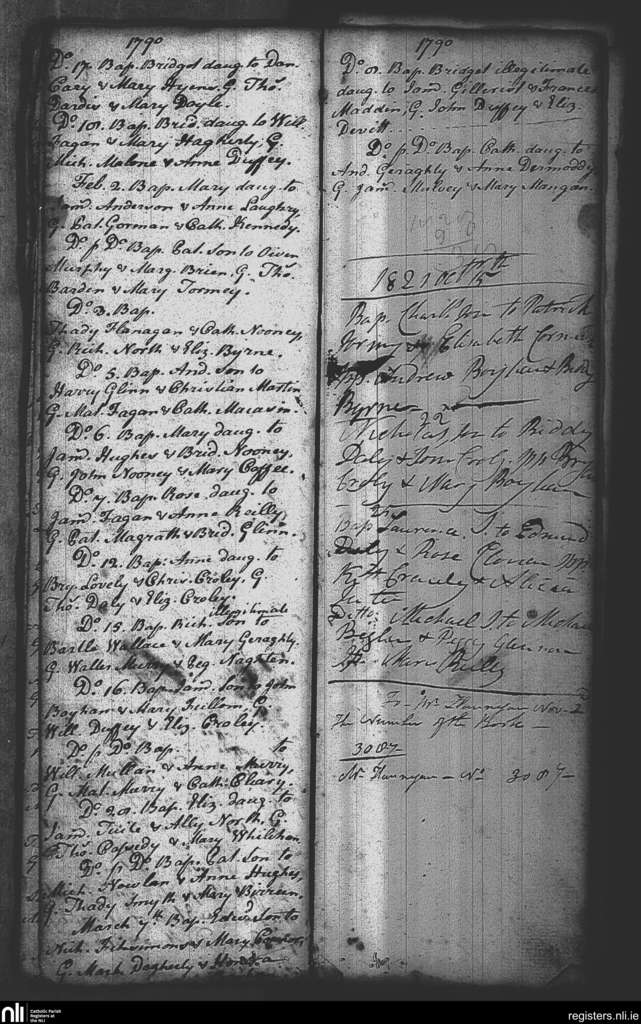 1790
Do. 17. Bap. Bridget daug. to Dan.
Cary & Mary Hyens. G. Tho.
Dardis & Mary Doyle.
Do. 18. Bap. Brid. daug. to Will
Fagan & Mary Hagherty, G.
Mich. Malone & Anne Duffey.
Feb. 2. Bap. Mary daug. to
Jamd. Anderson & Anne Laughry,
G. Pat. Gorman & Cath. Kennedy.
Do. p. Do. Bap. Pat. Son to Owen
Murphy & Marg. Brien. G. Tho.
Barden & Mary Tormey.
Do. 3. Bap.
Thady Flanagan & Cath. Nooney,
G. Rich. North & Eliz. Byrne.
Do. 5. Bap. And. Son to
Harry Glinn & Christian Martin
G. Mat. Fagan & Cath. Macavin.
Do. 6. Bap. Mary daug. to
Jamd. Hughes & Brid. Nooney.
G. John Nooney & Mary Coffee.
Do. 7. Bap. Rose daug. to
Jamd. Fagan & Anne Reilly
G. Pat. Magrath & Brid. Glinn.
Do. 12. Bap. Anne daug. to
Bry. Lovely & Chris. Croley, G.
Tho. Daly & Eliz. Croley.
illegitimate
Do. 15. Bap. Rich. Son to
Bartle Wallace & Mary Geraghty.
G. Walter Murry & Peg. Nagsten.
Do. 16. Bap. Jamd. Son to John
Boyhan & Mary Quillom, G.
Will. Duffey & Eliz. Croley.
Do. p. Do. Bap. to
Will. Mullan & Anne Murry,
G. Mat. Murry & Cath. Cleary.
Do. 20. Bap. Eliz. daug. to
Jamd. Tuite & Ally North, G.
Tho. Cassedy & Mary Whilehan
Do. p. Do. Bap. Pat. Son to
Mich. Nowlan & Anne Hughes,
G. Thady Smyth & Mary Birreen.
March 7th. Bap. Edwd. Son to
Nich. Fitzsimons & Mary Connor,
G. Mark Dogherty & Honora
1790
Do. 8. Bap. Bridget illegitimate
daug. to Jamd. Gillerist & Frances
Madden, G. John Duffey & Eliz.
Devitt.
Do. p. Do. Bap. Cath. daug. to
And. Geraghty & Anne Dermoddy
G. Jamd. Mulvey & Mary Mangan.
1821 Octr
Bap. Charls Son to Patrick
& Elisabeth
Andrew Boylan & Betty
Byrne
22
Nicholas Son to Biddy
Daly & Tom Cooly. Bryan
Croly & Mary Boylan
Bap. Laurence S. to Edmund
Daly & Rose
& Alicia
Ditto Michael S. to Michael
& Peggy Glennon
Mary Reilly
To Mr. Flannegan Novr. 2
The Number of the Book
3087
Mr. Flannegan No. 3087
nli
Catholic Parish
Registers at
the NLI
registers.nli.ie